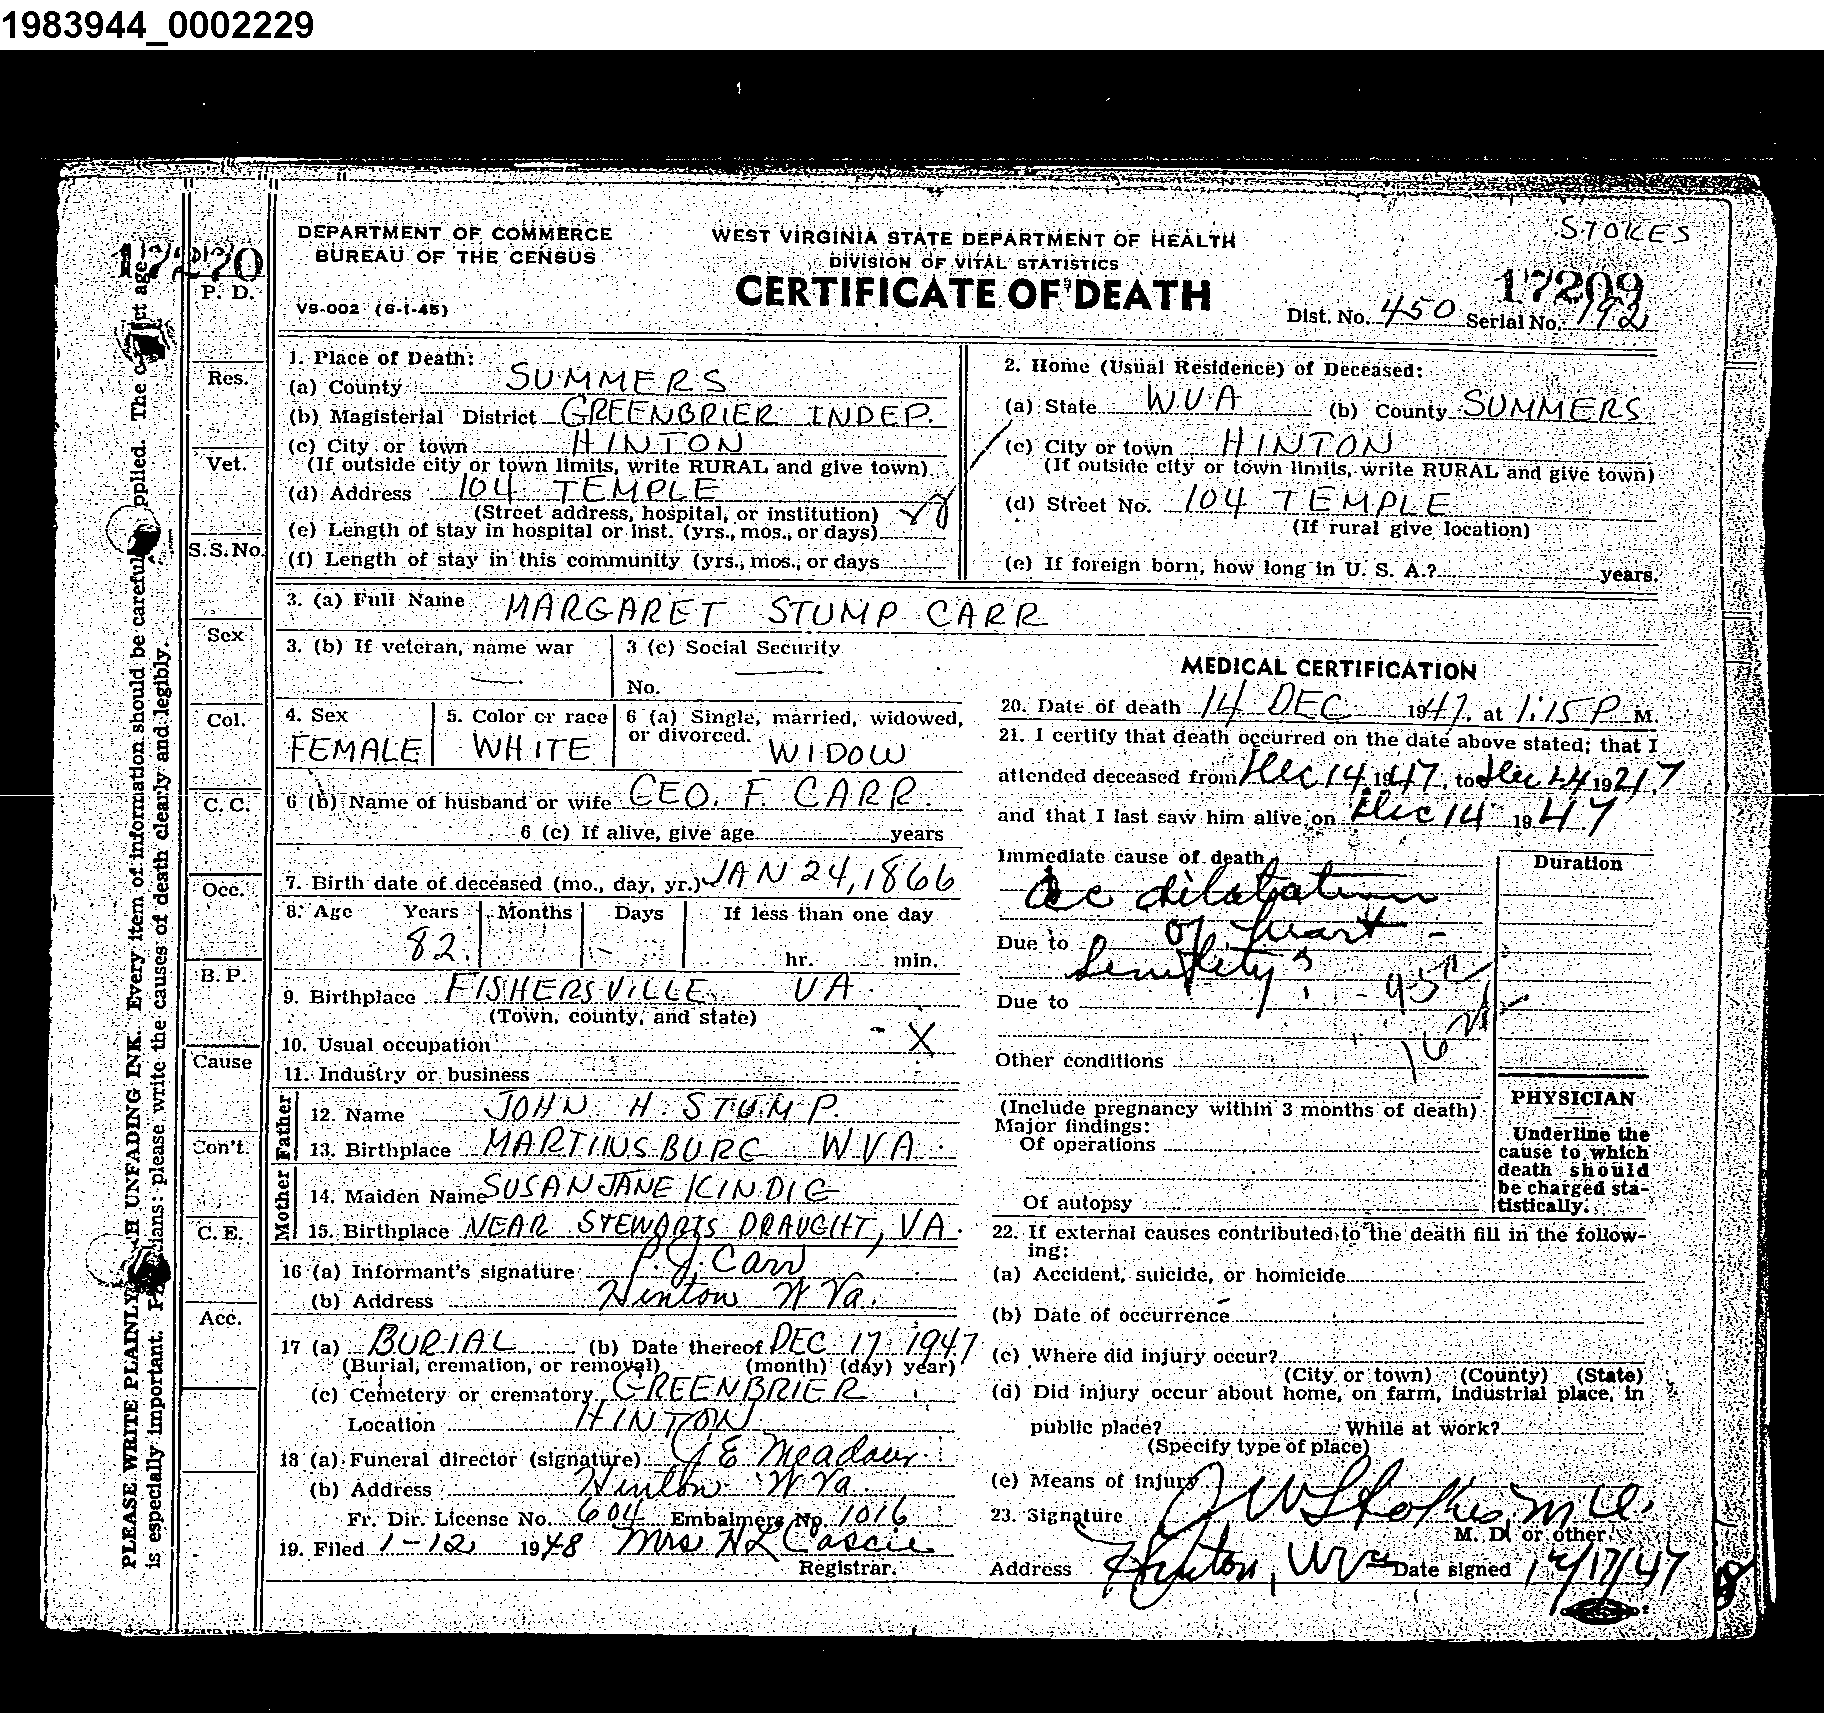 1983944_0002229
STOKES
DEPARTMENT OF COMMERCE
BUREAU OF THE CENSUS
VS-002 (6-1-45)
WEST VIRGINIA STATE DEPARTMENT OF HEALTH
DIVISION OF VITAL STATISTICS
CERTIFICATE OF DEATH
17209
Dist. No. 450 Serial No. 192
17270
P. D.
Res.
Vet.
S.S. No.
Sex
Col.
C. C.
Occ.
B. P.
Cause
Con't.
C. E.
Acc.
PLEASE WRITE PLAINLY UNFADING INK. Every item of information should be carefully supplied. The age
is especially important. please write the causes of death clearly and legibly.
1. Place of Death:
(a) County SUMMERS
(b) Magisterial District GREENBRIER INDEP.
(c) City or town HINTON
(If outside city or town limits, write RURAL and give town)
(d) Address 104 TEMPLE
(Street address, hospital, or institution)
(e) Length of stay in hospital or inst. (yrs., mos., or days)
(f) Length of stay in this community (yrs., mos., or days
2. Home (Usual Residence) of Deceased:
(a) State W VA (b) County SUMMERS
(c) City or town HINTON
(If outside city or town limits, write RURAL and give town)
(d) Street No. 104 TEMPLE
(If rural give location)
(e) If foreign born, how long in U. S. A.? years.
3. (a) Full Name MARGARET STUMP CARR
3. (b) If veteran, name war
3 (c) Social Security
No.
4. Sex
FEMALE
5. Color or race
WHITE
6 (a) Single, married, widowed,
or divorced. WIDOW
6 (b) Name of husband or wife GEO. F. CARR.
6 (c) If alive, give age years
7. Birth date of deceased (mo., day, yr.) JAN 24, 1866
8. Age Years Months Days If less than one day
82. hr. min.
9. Birthplace FISHERSVILLE, VA.
(Town, county, and state)
10. Usual occupation X
11. Industry or business
Father
12. Name JOHN H. STUMP.
13. Birthplace MARTINSBURG W VA.
Mother
14. Maiden Name SUSAN JANE KINDIG
15. Birthplace NEAR STEWARTS DRAUGHT, VA.
16 (a) Informant's signature P. J. Carr
(b) Address Hinton W Va.
17 (a) BURIAL (b) Date thereof DEC 17. 1947
(Burial, cremation, or removal) (month) (day) year)
(c) Cemetery or crematory GREENBRIER
Location HINTON
18 (a) Funeral director (signature) J E Meadow
(b) Address Hinton W Va.
Fr. Dir. License No. 604 Embalmers No. 1016
19. Filed 1-12 1948 Mrs H L Cassie
Registrar.
MEDICAL CERTIFICATION
20. Date of death 14 DEC 1947. at 1:15 P M.
21. I certify that death occurred on the date above stated; that I
attended deceased from Dec 14, 1947, to Dec 14 1947
and that I last saw him alive on Dec 14 1947
Immediate cause of death Duration
Ac dilatation
Due to of heart -
Senility?
Due to
Other conditions
(Include pregnancy within 3 months of death)
Major findings:
Of operations
Of autopsy
PHYSICIAN
Underline the
cause to which
death should
be charged sta-
tistically.
22. If external causes contributed to the death fill in the follow-
ing:
(a) Accident, suicide, or homicide
(b) Date of occurrence
(c) Where did injury occur?
(City or town) (County) (State)
(d) Did injury occur about home, on farm, industrial place, in
public place? While at work?
(Specify type of place)
(e) Means of injury
23. Signature J W Stokes, M D.
M. D. or other
Address Hinton, W Va Date signed 12/17/47